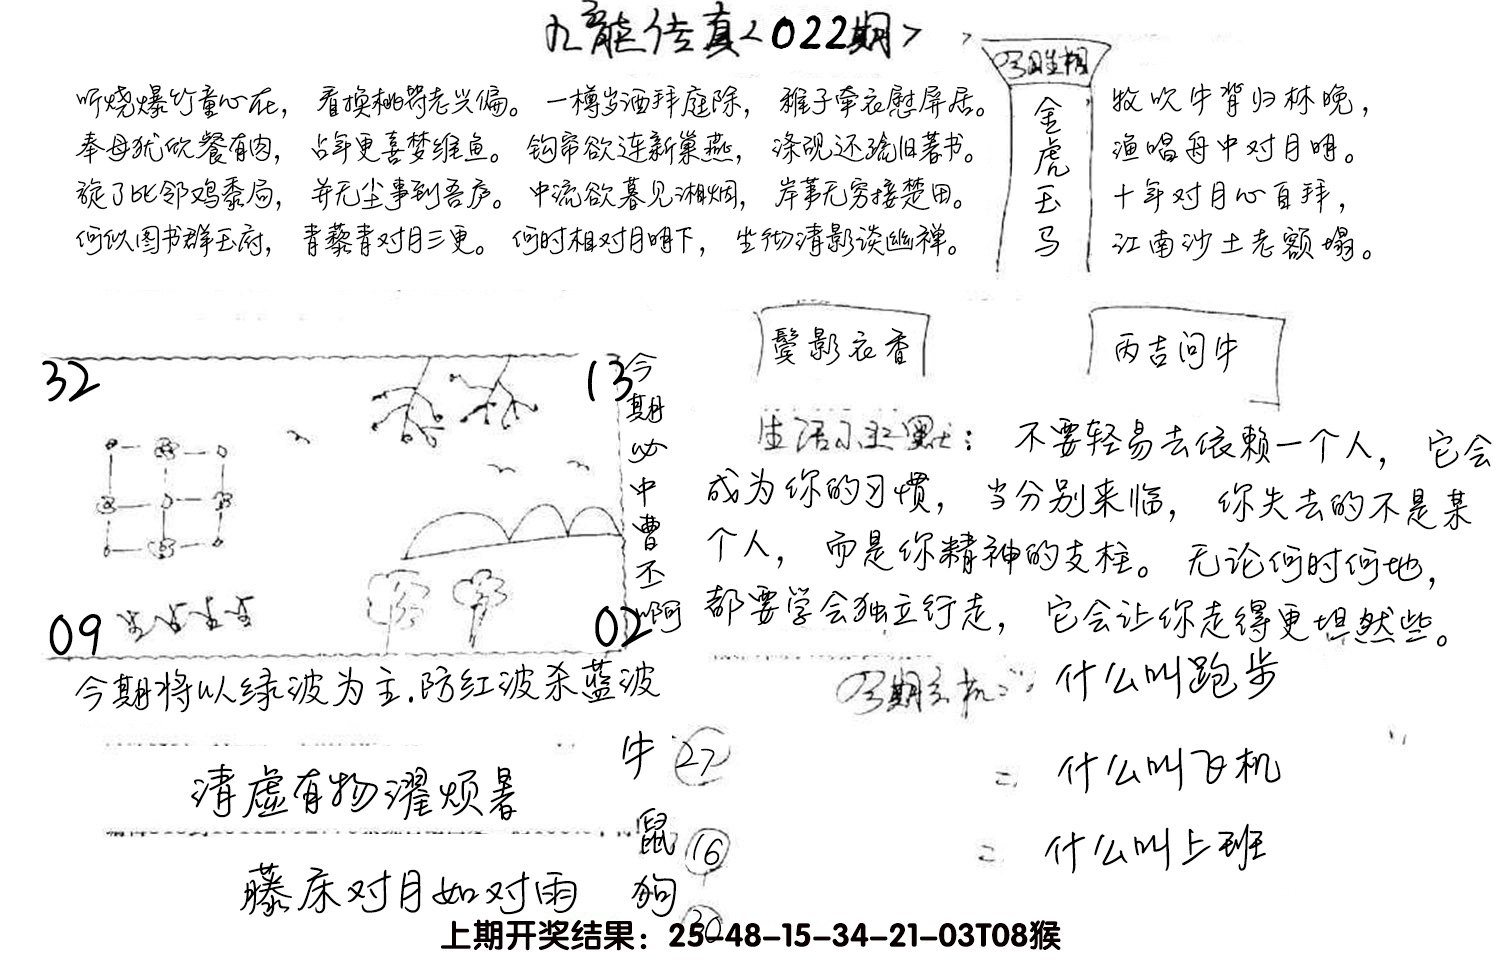 九龙传真<022期>
听烧爆竹童心在，看换桃符老兴偏。一樽岁酒拜庭除，稚子牵衣慰屏居。
奉母犹欣餐有肉，占年更喜梦维鱼。钩帘欲连新巢燕，涤砚还疏旧著书。
旋了比邻鸡黍局，并无尘事到吾庐。中流欲暮见湘烟，岸苇无穷接楚田。
何似图书群玉府，青藜青对月三更。何时相对月明下，坐彻清影谈幽禅。
金虎玉马
牧吹牛背归林晚，
渔唱舟中对月明。
十年对月心自拜，
江南沙土老额塌。
鬓影衣香
丙吉问牛
32
13
09
02
今期必中曹不啊
生活小幽默：不要轻易去依赖一个人，它会
成为你的习惯，当分别来临，你失去的不是某
个人，而是你精神的支柱。无论何时何地，
都要学会独立行走，它会让你走得更坦然些。
今期将以绿波为主.防红波杀蓝波
今期玄机：什么叫跑步
什么叫飞机
什么叫上班
清虚有物濯烦暑
藤床对月如对雨
牛 27
鼠 16
狗 30
上期开奖结果：25-48-15-34-21-03T08猴